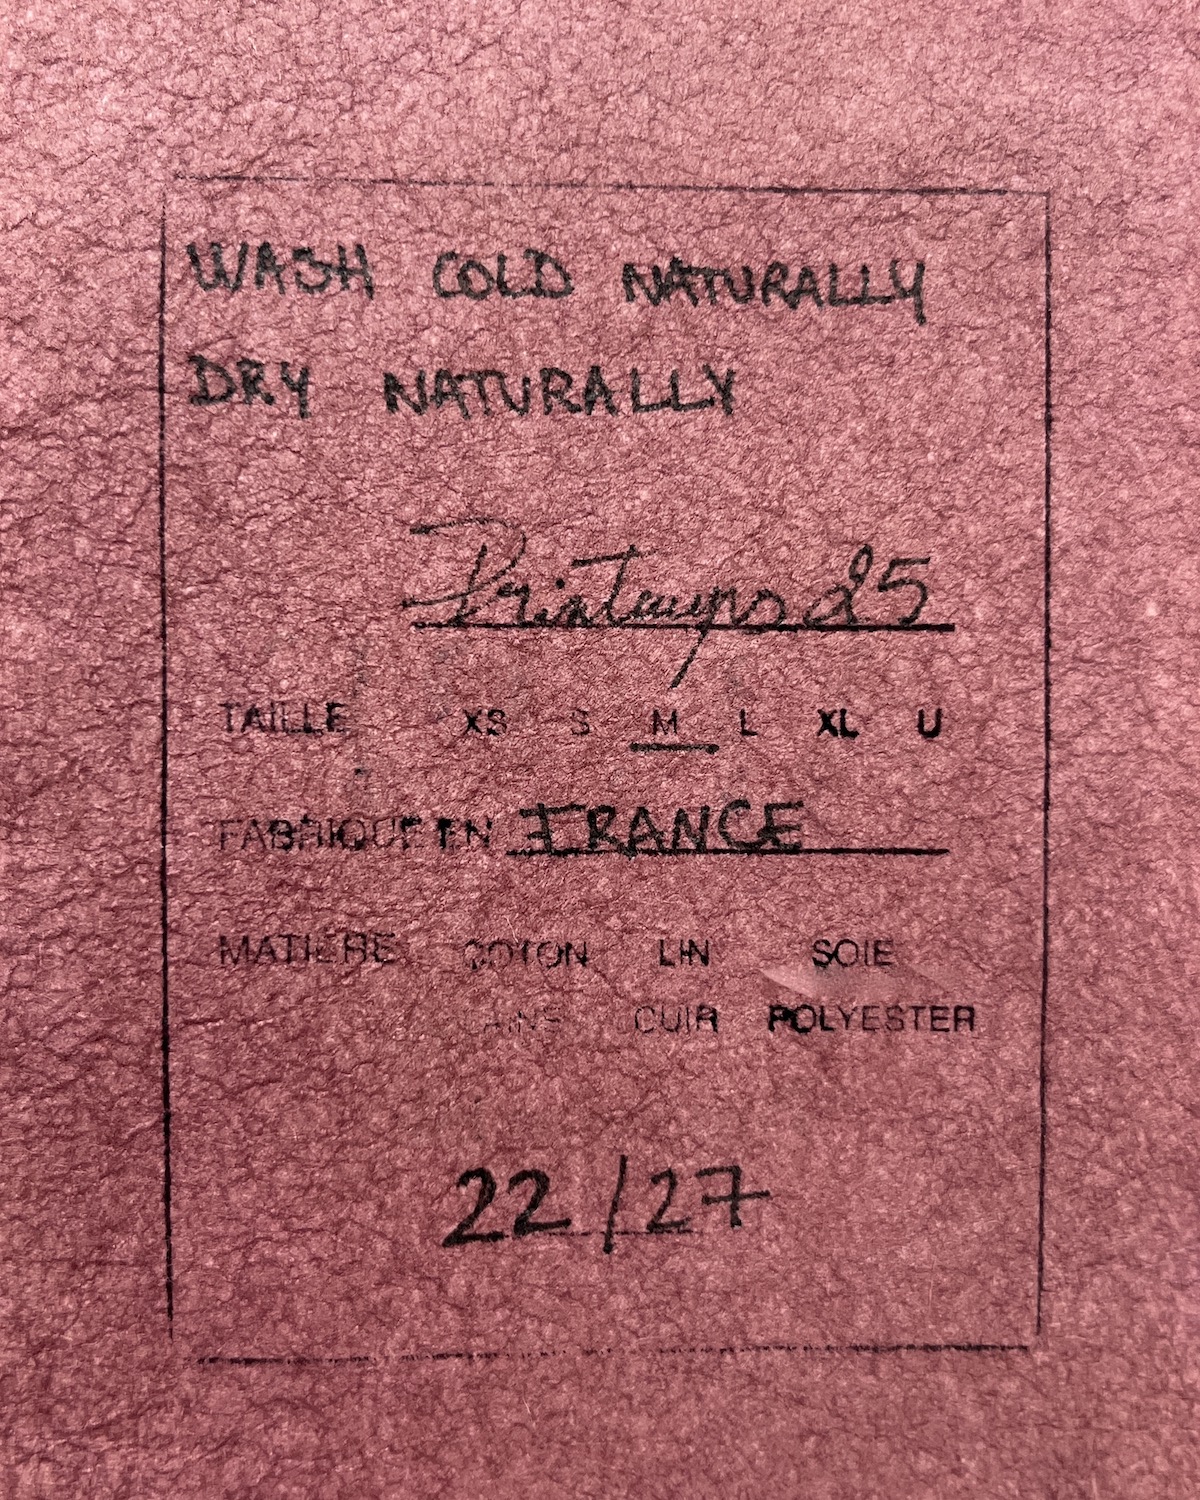 WASH COLD NATURALLY
DRY NATURALLY
Printemps 25
TAILLE XS S M L XL U
FABRIQUE EN FRANCE
MATIERE COTON LIN SOIE
LAINE CUIR POLYESTER
22/27